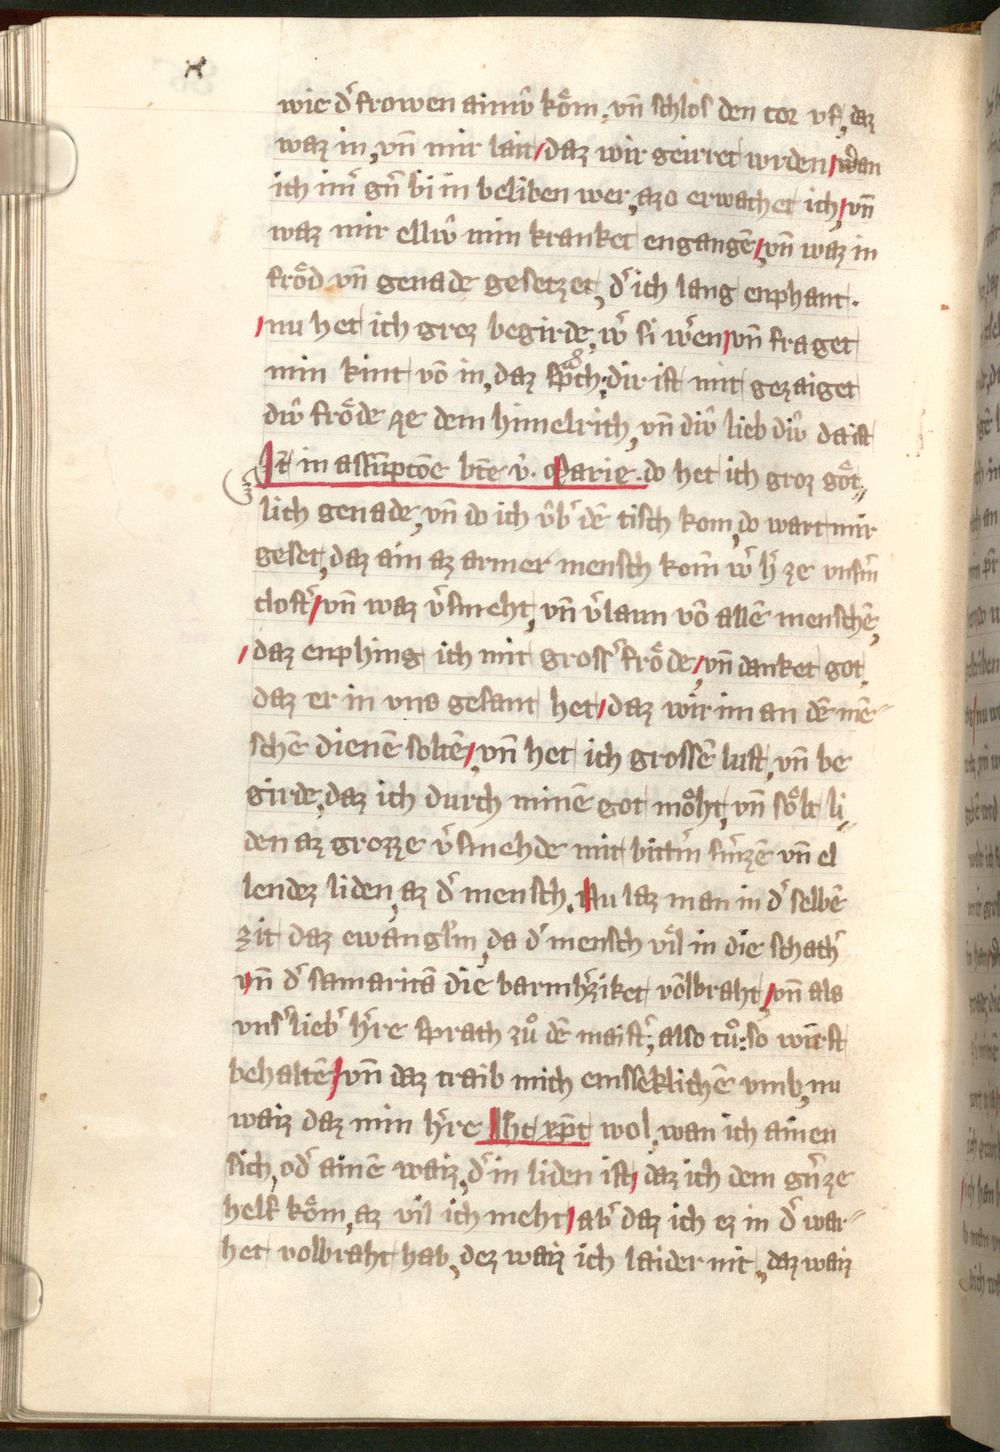 wie dˀ frowen ainiv̂ kͦem, vn̄ schlos den tor vf, daz
waz in, vn̄ mir lait / daz wir geirret wrden / wan
ich imˀ gn̄ bi in beliben wer, azo erwachet ich / vn̄
waz mir elliv̂ min kranket engangē / vn̄ waz in
frͦed vn̄ genade gesetzet, dˀ ich lang enphant .
/ nu het ich groz begirde, wˀ si wˀen / vn̄ fraget
min kint vō in, daz sprach: dir ist mit gezaiget
div̂ frͦede ze dem himelrich, vn̄ div̂ lieb div̂ da ist
Jt̄ in assūptōe btē v̂. Marie . do het ich groz gͦot⸗
lich genade, vn̄ do ich v̂bˀ dē tisch kom, do wart mir
geset, daz ain az armer mensch kom̄ wˀ hˀ ze vnsm̄
clostˀ / vn̄ waz vˀsmeht, vn̄ vˀlaun vō allē menschē,
/ daz enphing ich mit grossˀ frͦede / vn̄ danket got,
daz er in vns gesant het / daz wir im an dē mē⸗
schē dienē soltē / vn̄ het ich grossē lust, vn̄ be
girde, daz ich durch minē got mͦoht, vn̄ sͦolt li⸗
den az grozze vˀsmehde mit bittm̄ smˀzē vn̄ el
lendez liden, az dˀ mensch. Nu laz man in dˀ selbē
zit daz ewanglm̄, da dˀ mensch viel in die schachˀ
vn̄ dˀ samaritā die barmhˀziket volbraht / vn̄ als
vnsˀ liebˀ hˀre sprach zuͦ dē maistˀ, also tuͦ: so wirst
behaltē / vn̄ daz traib mich emsseklichē vmb, nu
waiz daz min hˀre Jhc xp̄c wol, wan ich ainen
sich, odˀ ainē waiz, dˀ in liden ist / daz ich dem gn̄ ze
helf kͦom, az vil ich meht / abˀ daz ich ez in dˀ war⸗
het volbraht hab, dez waiz ich laider nit, daz waiz